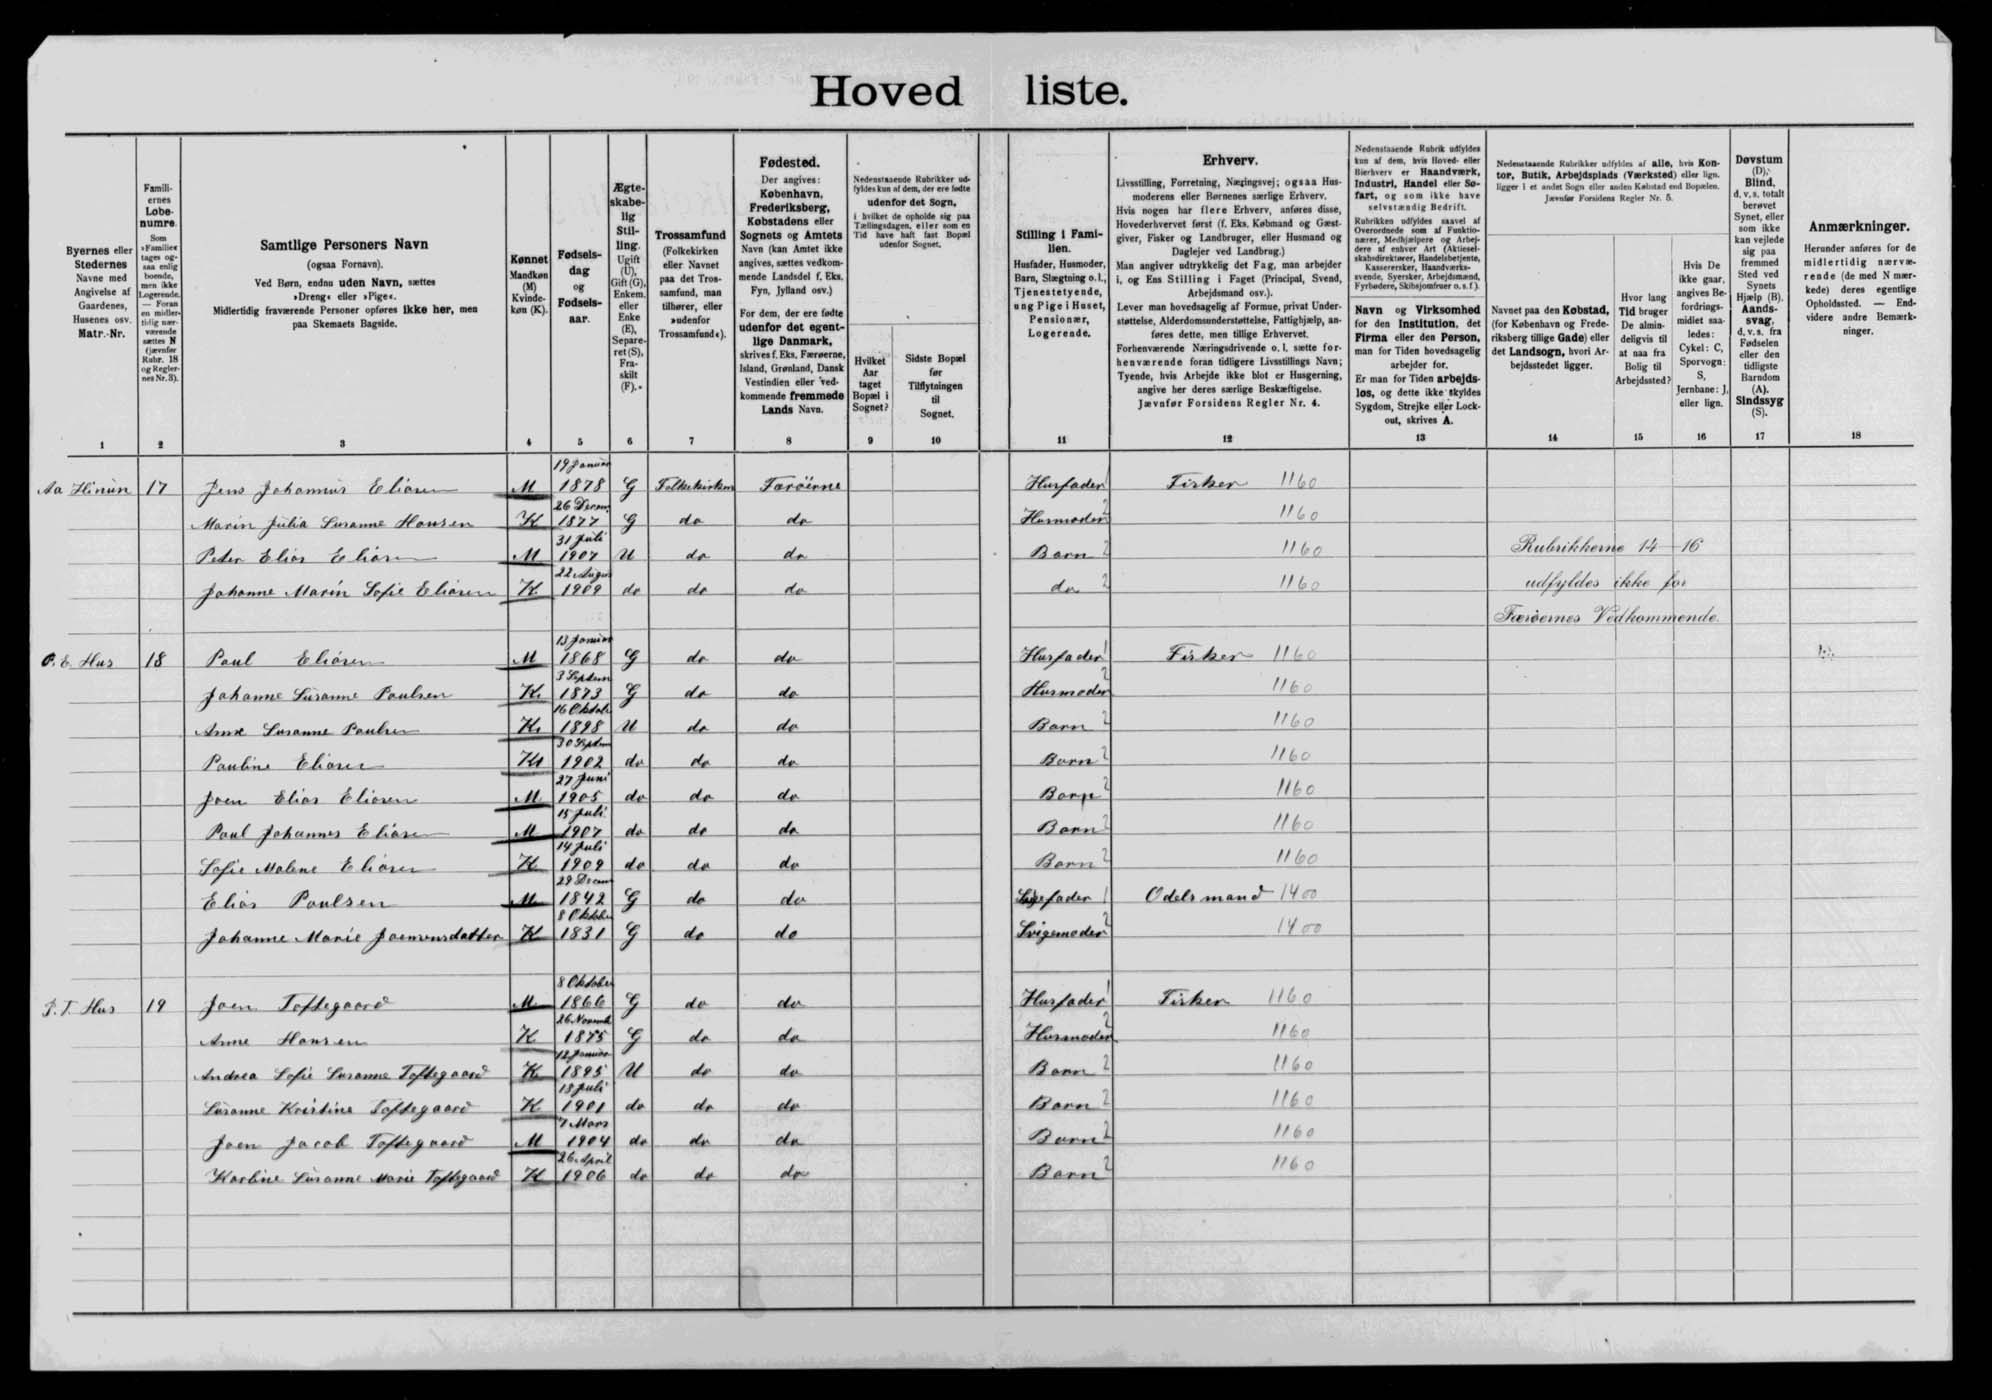 Hoved liste.
Byernes eller
Stedernes
Navne med
Angivelse af
Gaardenes,
Husenes osv.
Matr.-Nr.
Famili-
ernes
Løbe-
numre.
Som
»Familie«
tages og-
saa enlig
boende,
men ikke
Logerende.
— Foran
en midler-
tidig nær-
værende
sættes N
(jævnfør
Rubr. 18
og Regler-
nes Nr. 3).
Samtlige Personers Navn
(ogsaa Fornavn).
Ved Børn, endnu uden Navn, sættes
»Dreng« eller »Pige«.
Midlertidig fraværende Personer opføres ikke her, men
paa Skemaets Bagside.
Kønnet
Mandkøn
(M)
Kvinde-
køn (K).
Fødsels-
dag
og
Fødsels-
aar.
Ægte-
skabe-
lig
Stil-
ling.
Ugift
(U),
Gift (G),
Enkem.
eller
Enke
(E),
Separe-
ret (S),
Fra-
skilt
(F).
Trossamfund
(Folkekirken
eller Navnet
paa det Tros-
samfund, man
tilhører, eller
»udenfor
Trossamfund«).
Fødested.
Der angives:
København,
Frederiksberg,
Købstadens eller
Sognets og Amtets
Navn (kan Amtet ikke
angives, sættes vedkom-
mende Landsdel f. Eks.
Fyn, Jylland osv.)
For dem, der ere fødte
udenfor det egent-
lige Danmark,
skrives f. Eks. Færøerne,
Island, Grønland, Dansk
Vestindien eller ved-
kommende fremmede
Lands Navn.
Nedenstaaende Rubrikker ud-
fyldes kun af dem, der ere fødte
udenfor det Sogn,
i hvilket de opholde sig paa
Tællingsdagen, eller som en
Tid have haft fast Bopæl
udenfor Sognet.
Hvilket
Aar
taget
Bopæl i
Sognet?
Sidste Bopæl
før
Tilflytningen
til
Sognet.
Stilling i Fami-
lien.
Husfader, Husmoder,
Barn, Slægtning o. l.,
Tjenestetyende,
ung Pige i Huset,
Pensionær,
Logerende.
Erhverv.
Livsstilling, Forretning, Næringsvej; ogsaa Hus-
moderens eller Børnenes særlige Erhverv.
Hvis nogen har flere Erhverv, anføres disse,
Hovederhvervet først (f. Eks. Købmand og Gæst-
giver, Fisker og Landbruger, eller Husmand og
Daglejer ved Landbrug.)
Man angiver udtrykkelig det Fag, man arbejder
i, og Ens Stilling i Faget (Principal, Svend,
Arbejdsmand osv.).
Lever man hovedsagelig af Formue, privat Under-
støttelse, Alderdomsunderstøttelse, Fattighjælp, an-
føres dette, men tillige Erhvervet.
Forhenværende Næringsdrivende o. l. sætte for-
henværende foran tidligere Livsstillings Navn;
Tyende, hvis Arbejde ikke blot er Husgerning,
angive her deres særlige Beskæftigelse.
Jævnfør Forsidens Regler Nr. 4.
Nedenstaaende Rubrik udfyldes
kun af dem, hvis Hoved- eller
Bierhverv er Haandværk,
Industri, Handel eller Sø-
fart, og som ikke have
selvstændig Bedrift.
Rubrikken udfyldes saavel af
Overordnede som af Funktio-
nærer, Medhjælpere og Arbej-
dere af enhver Art (Aktiesel-
skabsdirektører, Handelsbetjente,
Kasserersker, Haandværks-
svende, Syersker, Arbejdsmænd,
Fyrbødere, Skibsjomfruer o. s. f.).
Navn og Virksomhed
for den Institution, det
Firma eller den Person,
man for Tiden hovedsagelig
arbejder for.
Er man for Tiden arbejds-
løs, og dette ikke skyldes
Sygdom, Strejke eller Lock-
out, skrives A.
Nedenstaaende Rubrikker udfyldes af alle, hvis Kon-
tor, Butik, Arbejdsplads (Værksted) eller lign.
ligger i et andet Sogn eller anden Købstad end Bopælen.
Jævnfør Forsidens Regler Nr. 5.
Navnet paa den Købstad,
(for København og Frede-
riksberg tillige Gade) eller
det Landsogn, hvori Ar-
bejdsstedet ligger.
Hvor lang
Tid bruger
De almin-
deligvis til
at naa fra
Bolig til
Arbejdssted?
Hvis De
ikke gaar,
angives Be-
fordrings-
midlet saa-
ledes:
Cykel: C,
Sporvogn:
S,
Jernbane: J,
eller lign.
Døvstum
(D),
Blind,
d. v. s. totalt
berøvet
Synet, eller
som ikke
kan vejlede
sig paa
fremmed
Sted ved
Synets
Hjælp (B).
Aands-
svag,
d. v. s. fra
Fødselen
eller den
tidligste
Barndom
(A).
Sindssyg
(S).
Anmærkninger.
Herunder anføres for de
midlertidig nærvæ-
rende (de med N mær-
kede) deres egentlige
Opholdssted. — End-
videre andre Bemærk-
ninger.
1 2 3 4 5 6 7 8 9 10 11 12 13 14 15 16 17 18
Aa Hinun 17 Jens Johannus Eliasen M 19 Januar 1878 G Folkekirken Færöerne Husfader 1 Fisker 1160
Marin Julia Susanne Hansen K 26 Decem. 1877 G do do Husmoder 2 1160
Peter Elias Eliasen M 31 Juli 1907 U do do Barn 2 1160 Rubrikkerne 14–16
Johanne Marin Sofie Eliasen K 22 August 1909 do do do do 2 1160 udfyldes ikke for
Færöernes Vedkommende.
P. E. Hus 18 Paul Eliasen M 13 Januar 1868 G do do Husfader 1 Fisker 1160
Johanne Susanne Paulsen K 3 Septem 1873 G do do Husmoder 2 1160
Anne Susanne Paulsen K 16 Oktob 1898 U do do Barn 2 1160
Pauline Eliasen K 30 Septem 1902 do do do Barn 2 1160
Joen Elias Eliasen M 27 Juni 1905 do do do Barn 2 1160
Paul Johannes Eliasen M 15 Juli 1907 do do do Barn 2 1160
Sofie Malene Eliasen K 14 Juli 1909 do do do Barn 2 1160
Elias Paulsen M 29 Decem 1842 G do do Svigefader 1 Odelsmand 1400
Johanne Marie Joensensdatter K 8 Oktober 1831 G do do Svigemoder 2 1400
J. T. Hus 19 Joen Toftegaard M 8 Oktober 1866 G do do Husfader 1 Fisker 1160
Anne Hansen K 26 Novemb 1875 G do do Husmoder 2 1160
Andrea Sofie Susanne Toftegaard K 12 Januar 1895 U do do Barn 2 1160
Susanne Kristine Toftegaard K 18 Juli 1901 do do do Barn 2 1160
Joen Jacob Toftegaard M 7 Mars 1904 do do do Barn 2 1160
Karline Susanne Marie Toftegaard K 26 April 1906 do do do Barn 2 1160